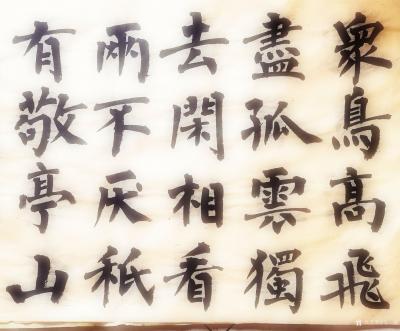 眾鳥高飛
盡孤雲獨
去閑相看
兩不厌秪
有敬亭山